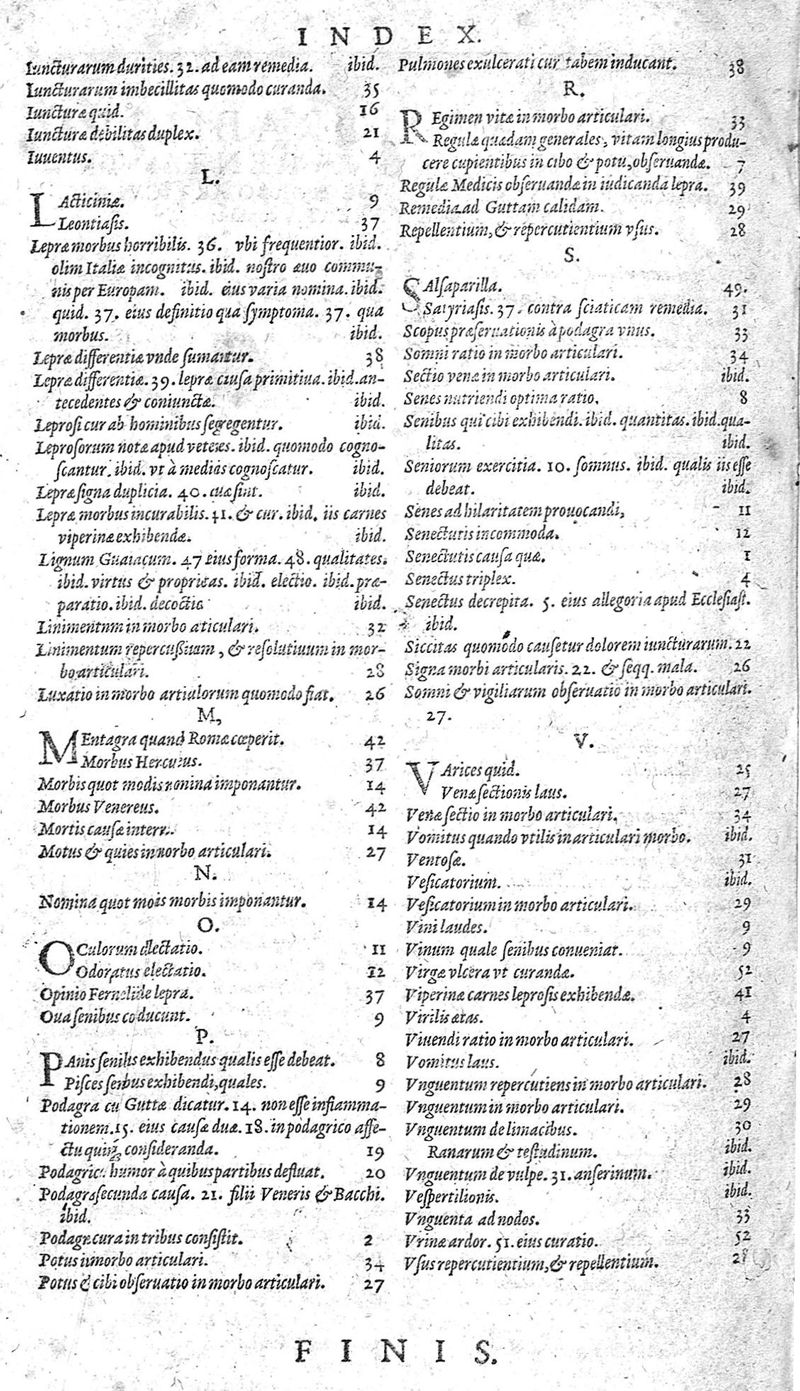 INDEX.
Iuncturarum durities. 32. ad eam remedia. ibid.
Iuncturarum imbecillitas quomodo curanda. 35
Iuncturæ quid. 16
Iuncturæ debilitas duplex. 21
Iuuentus. 4
L.
LActiciniæ. 9
Leontiasis. 37
Lepræ morbus horribilis. 36. vbi frequentior. ibid.
olim Italiæ incognitus. ibid. nostro æuo commu-
nis per Europam. ibid. eius varia nomina. ibid.
quid. 37. eius definitio qua symptoma. 37. qua
morbus. ibid.
Lepræ differentiæ vnde sumantur. 38
Lepræ differentiæ. 39. lepræ causa primitiua. ibid. an-
tecedentes & coniunctæ. ibid.
Leprosi cur ab hominibus segregentur. ibid.
Leprosorum notæ apud veteres. ibid. quomodo cogno-
scantur. ibid. vt à medicis cognoscatur. ibid.
Lepræ signa duplicia. 40. quæ sint. ibid.
Lepræ morbus incurabilis. 41. & cur. ibid. iis carnes
viperinæ exhibendæ. ibid.
Lignum Guaiacum. 47 eius forma. 48. qualitates.
ibid. virtus & proprietas. ibid. electio. ibid. præ-
paratio. ibid. decoctio ibid.
Linimentum in morbo aticulari. 32
Linimentum repercussiuum, & resolutiuum in mor-
bo articulari. 28
Luxatio in morbo artiulorum quomodo fiat. 26
M,
MEntagra quand Romæ cœperit. 42
Morbus Herculeus. 37
Morbis quot modis nomina imponantur. 14
Morbus Venereus. 42
Mortis causæ intern. 14
Motus & quies in morbo articulari. 27
N.
Nomina quot mois morbis imponantur. 14
O.
OCulorum electatio. 11
Odoratus electatio. 12
Opinio Fernelii de lepra. 37
Oua senibus coducunt. 9
P.
PAnis senilus exhibendus qualis esse debeat. 8
Pisces senibus exhibendi, quales. 9
Podagra cu Guttæ dicatur. 14. non esse inflamma-
tionem. 15. eius causæ duæ. 18. in podagrico affe-
ctu quinq; consideranda. 19
Podagrici humor à quibus partibus defluat. 20
Podagræ secunda causa. 21. filii Veneris & Bacchi.
ibid.
Podagræ cura in tribus consistit. 2
Potus in morbo articulari. 34
Potus & cibi obseruatio in morbo articulari. 27
Pulmones exulcerati cur tabem inducant. 38
R.
REgimen vitæ in morbo articulari. 33
Regulæ quædam generales, vitam longius produ-
cere cupientibus in cibo & potu, obseruandæ. 7
Regulæ Medicis obseruandæ in iudicanda lepra. 39
Remedia ad Guttam calidam. 29
Repellentium, & repercutientium vsus. 28
S.
SAlsaparilla. 49.
Satyriasis. 37. contra sciaticam remedia. 31
Scopus præseruationis à podagra vnus. 33
Somni ratio in morbo articulari. 34
Sectio venæ in morbo articulari. ibid.
Senes nutriendi optima ratio. 8
Senibus qui cibi exhibendi. ibid. quantitas. ibid. qua-
litas. ibid.
Seniorum exercitia. 10. somnus. ibid. qualis iis esse
debeat. ibid.
Senes ad hilaritatem prouocandi, 11
Senectutis incommoda. 12
Senectutis causa quæ. 1
Senectus triplex. 4
Senectus decrepita. 5. eius allegoria apud Ecclesiast.
ibid.
Siccitas quomodo causetur dolorem iuncturarum. 22
Signa morbi articularis. 22. & seqq. mala. 26
Somni & vigiliarum obseruatio in morbo articulari.
27.
V.
VArices quid. 25
Venæ sectionis laus. 27
Venæ sectio in morbo articulari. 34
Vomitus quando vtilis in articulari morbo. ibid.
Ventosæ. 31
Vesicatorium. ibid.
Vesicatorium in morbo articulari. 29
Vini laudes. 9
Vinum quale senibus conueniat. 9
Virgæ vlcera vt curandæ. 52
Viperinæ carnes leprosis exhibendæ. 41
Virilis ætas. 4
Viuendi ratio in morbo articulari. 27
Vomitus laus. ibid.
Vnguentum repercutiens in morbo articulari. 28
Vnguentum in morbo articulari. 29
Vnguentum de limacibus. 30
Ranarum & testudinum. ibid.
Vnguentum de vulpe. 31. anserinum. ibid.
Vespertilionis. ibid.
Vnguenta ad nodos. 33
Vrinæ ardor. 51. eius curatio. 52
Vsus repercutientium, & repellentium. 28
FINIS.